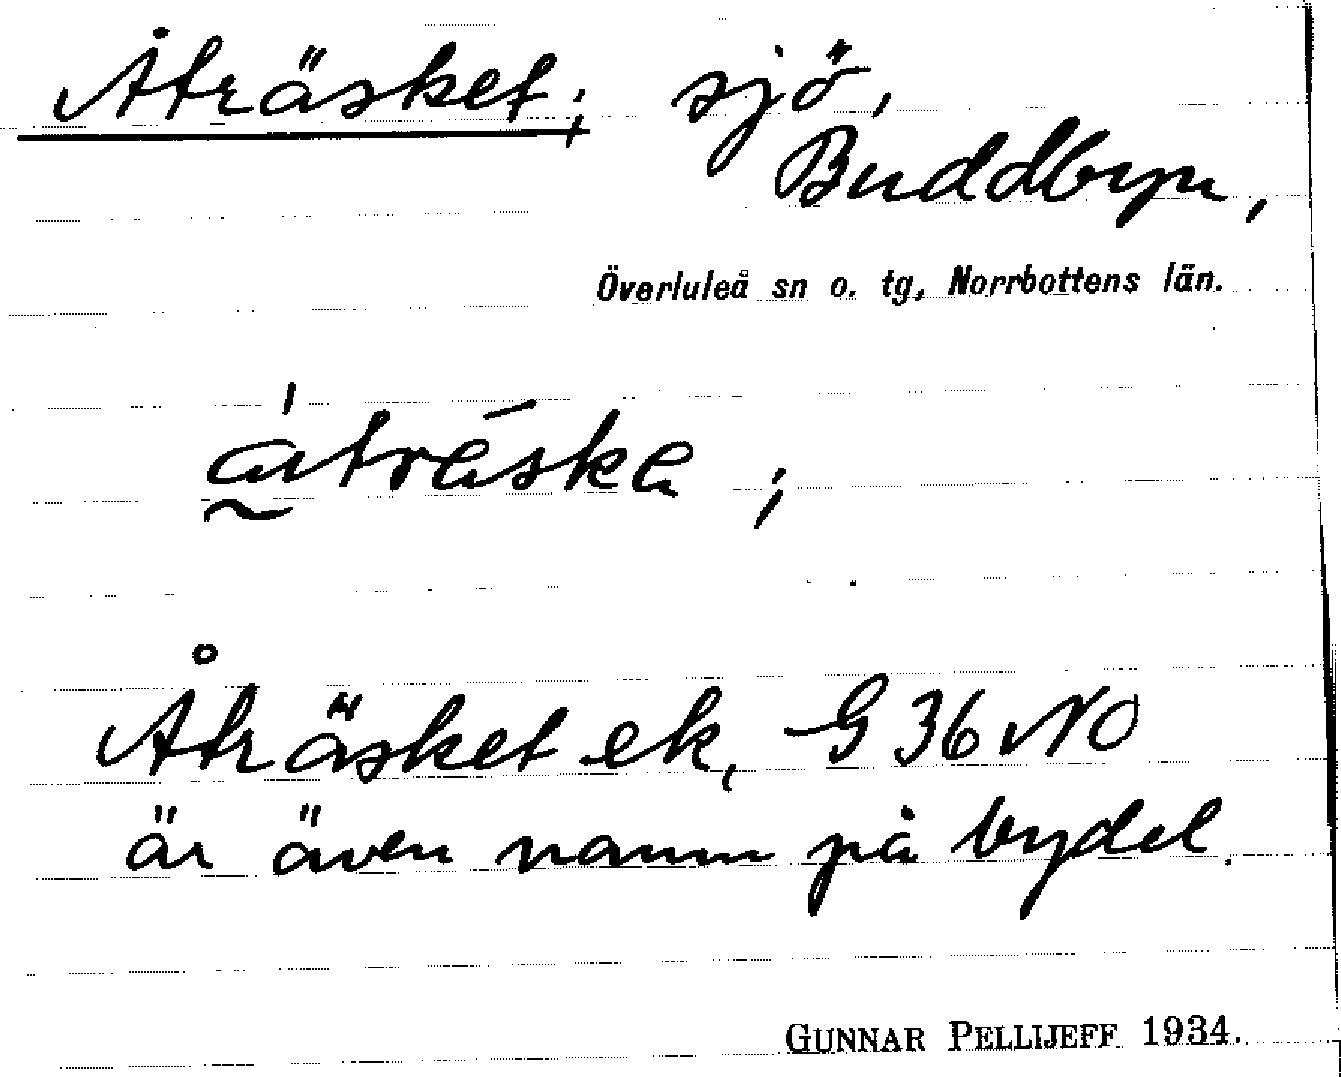 Åträsket; sjö,
Buddbyn,
Överluleå sn o. tg, Norrbottens län.
Åträsket ek, G 36 NO
är även namn på bydel.
GUNNAR PELLIJEFF 1934.